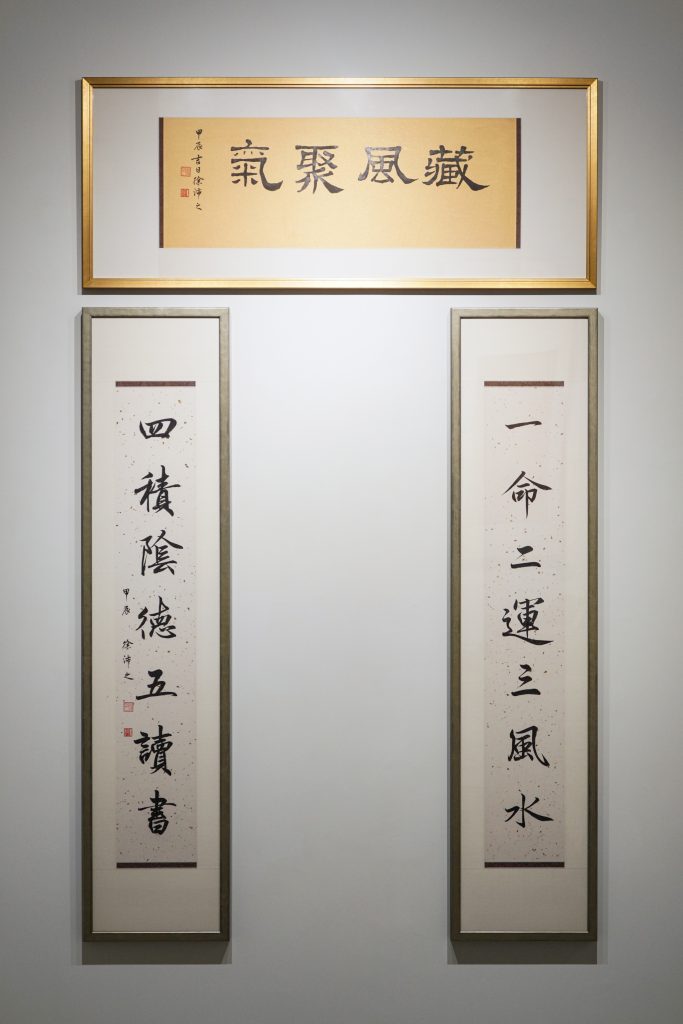 藏風聚氣
甲辰吉日徐沛之
一命二運三風水
四積陰德五讀書
甲辰 徐沛之